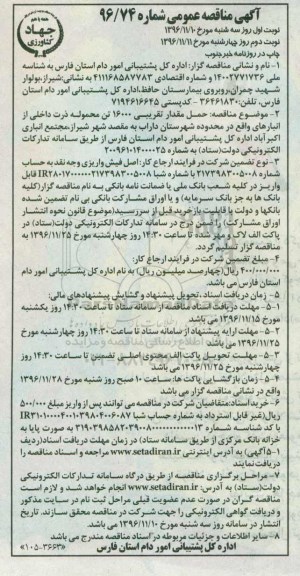 جهاد
کشاورزی
آگهی مناقصه عمومی شماره ۹۶/۷۴
نوبت اول روز سه شنبه مورخ ۱۳۹۶/۱۱/۱۰
نوبت دوم روز چهارشنبه مورخ ۱۳۹۶/۱۱/۱۱
چاپ در روزنامه خبرجنوب
۱- نام و نشانی مناقصه گزار: اداره کل پشتیبانی امور دام استان فارس به شناسه
ملی ۱۴۰۰۲۷۷۱۷۳۶ و شماره اقتصادی ۴۱۱۱۶۸۵۸۷۷۸۳ به نشانی:شیراز،بولوار
شهید چمران،روبروی بیمارستان حافظ،اداره کل پشتیبانی امور دام استان
فارس، تلفن: ۳۶۴۶۱۸۳۰ - کدپستی ۷۱۹۴۶۱۶۶۴۵
۲- موضوع مناقصه: حمل مقدار تقریبی ۱۶۰۰۰ تن محموله ذرت داخلی از
انبارهای واقع در محدوده شهرستان داراب به مقصد شهر شیراز،مجتمع انباری
اکبرآباد اداره کل پشتیبانی امور دام استان فارس از طریق سامانه تدارکات
الکترونیکی دولت(ستاد) به شماره ۲۰۰۹۶۰۱۰۴۰۰۰۰۲۵
۳- نوع تضمین شرکت در فرایند ارجاع کار: اصل فیش واریزی وجه نقد به حساب
شماره ۲۱۷۳۹۸۳۰۰۵۰۰۸ با شماره شبا
واریز در کلیه شعب بانک ملی یا ضمانت نامه بانکی به نام مناقصه گزار(کلیه
بانک ها به جز بانک سرمایه) و یا اوراق مشارکت بانکی بی نام تضمین شده
بانکها و دولت با قابلیت بازخرید قبل از سررسید(موضوع قانون نحوه انتشار
اوراق مشارکت) را ضمن درج در سامانه تدارکات الکترونیکی دولت(ستاد) در
پاکت الف لاک و مهر شده تا ساعت ۱۴:۳۰ روز چهارشنبه مورخ ۱۳۹۶/۱۱/۲۵ به
مناقصه گزار تسلیم گردد.
۴- مبلغ تضمین شرکت در فرایند ارجاع کار:
۴۰۰/۰۰۰/۰۰۰ ریال(چهارصد میلیون ریال) به نام اداره کل پشتیبانی امور دام
استان فارس می باشد.
۵- زمان دریافت اسناد ،تحویل پیشنهاد و گشایش پیشنهادهای مالی:
۵-۱- مهلت دریافت اسناد مناقصه از سامانه ستاد تا ساعت ۱۴:۳۰ روز یکشنبه
مورخ ۱۳۹۶/۱۱/۱۵ می باشد
۵-۲- مهلت ارایه پیشنهاد از سامانه ستاد تا ساعت ۱۴:۳۰ روز چهارشنبه مورخ
۱۳۹۶/۱۱/۲۵ می باشد
۵-۳- مهلت تحویل پاکت الف محتوی اصلی تضمین تا ساعت ۱۴:۳۰ روز
چهارشنبه مورخ ۱۳۹۶/۱۱/۲۵ می باشد
۵-۴- زمان بازگشایی پاکت ها: ساعت ۱۰ صبح روز شنبه مورخ ۱۳۹۶/۱۱/۲۸
واقع در نشانی مناقصه گزار می باشد
۶- خرید اسناد:متقاضیان شرکت در مناقصه می توانند پس از واریز مبلغ ۵۰۰/۰۰۰
ریال(غیر قابل استرداد به شماره حساب شبا
با کد شناسه شماره به صورت پایا به
خزانه بانک مرکزی از طریق سامانه ستاد) در زمان مهلت دریافت اسناد(ردیف
۵-۱آگهی) به آدرس اینترنتی www.setadiran.ir مراجعه و اسناد مناقصه را
دریافت نمایند
۷- مراحل برگزاری مناقصه از طریق درگاه سامانه تدارکات الکترونیکی
دولت(ستاد) به آدرس: www.setadiran.ir انجام خواهد شد و لازم است
مناقصه گران در صورت عدم عضویت قبلی مراحل ثبت نام در سایت مذکور
و دریافت گواهی الکترونیکی را جهت شرکت در مناقصه محقق سازند. تاریخ
انتشار در سامانه روز سه شنبه مورخ ۱۳۹۶/۱۱/۱۰ می باشد
۸- سایر اطلاعات و جزئیات مربوطه در اسناد مناقصه مندرج می باشد
اداره کل پشتیبانی امور دام استان فارس